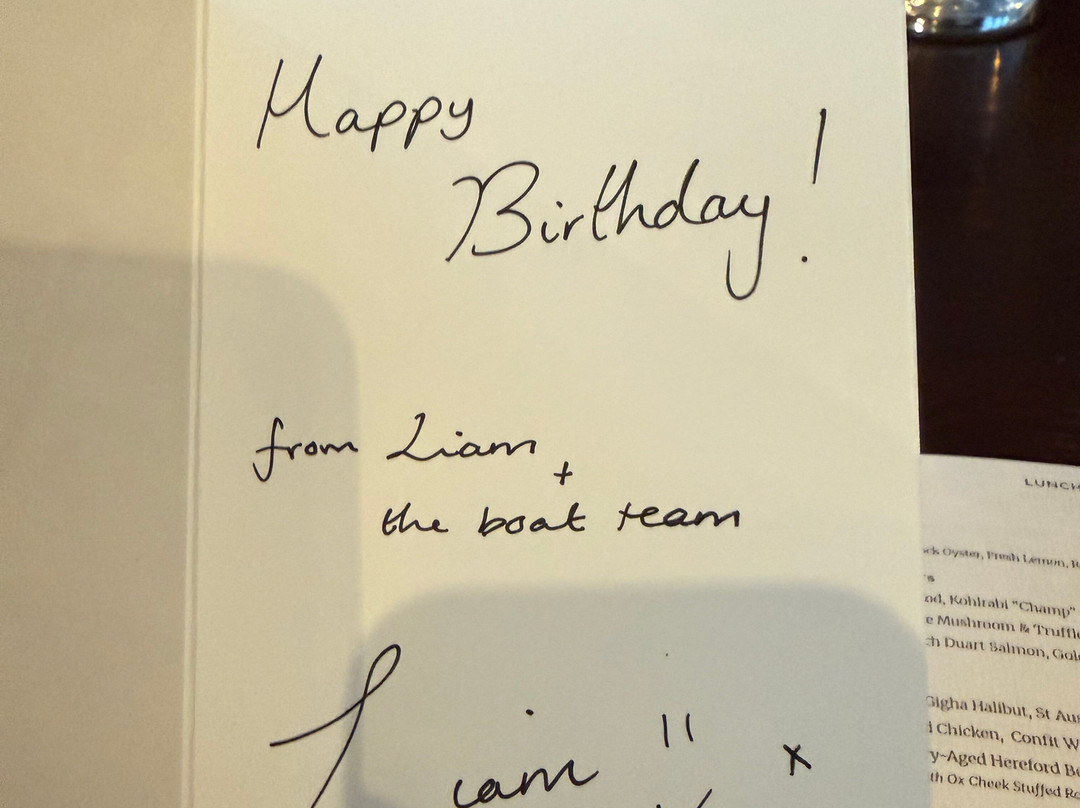 Happy
Birthday!
from Liam
+
the boat team
Liam
x
LUNCH
Oyster, Fresh Lemon,
Kohlrabi "Champ"
Mushroom & Truffle
Duart Salmon,
Gigha Halibut, St
Chicken, Confit
Hereford
Ox Cheek Stuffed